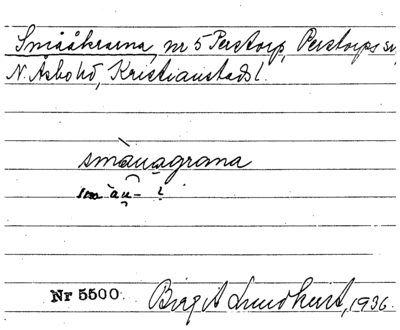 Smååkrarna, nr 5 Perstorp, Perstorps sn,
N. Åsbo hd, Kristianstads l.
smàuagrana
Nr 5500
Birgit Lundkvist, 1936.